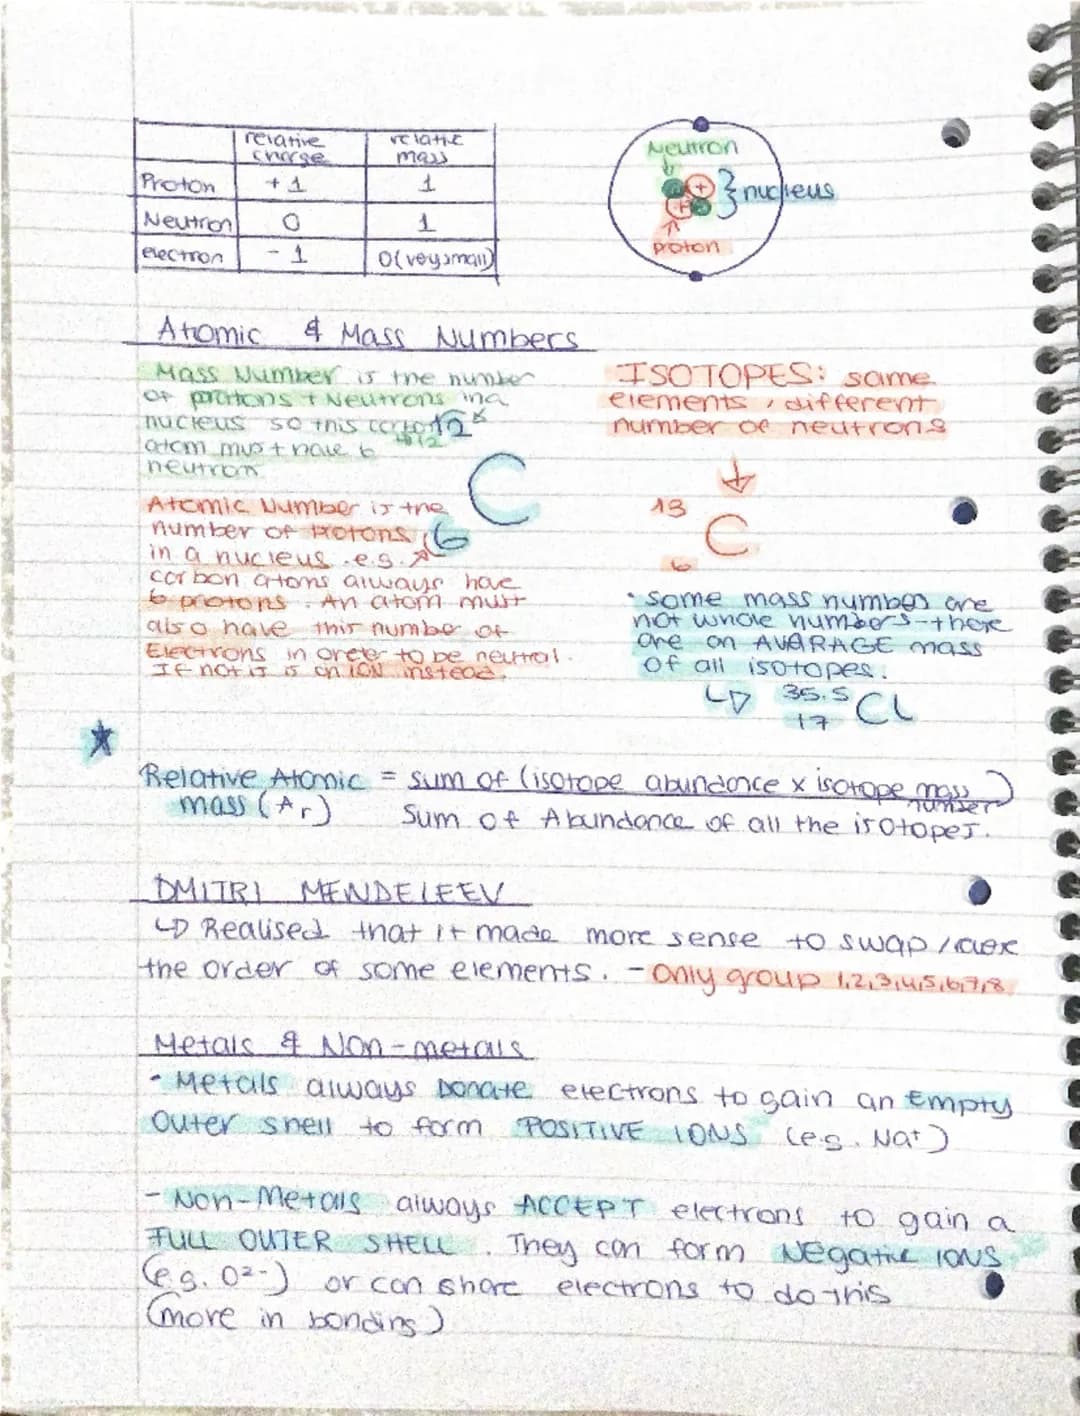 relative charge relative mass
Proton +1 1
Neutron 0 1
electron - 1 0(veysmall)
Neutron
+ } nucleus
+
proton
Atomic & Mass Numbers
Mass Number is the number
of protons + Neutrons in a
nucleus so this carbon 12
atom must have 6
neutron
C
Atomic Number is the
number of protons 6
in a nucleus .e.g.
carbon atoms always have
6 protons . An atom must
also have this number of
Electrons in oreer to be neutral.
If not it is an ION instead.
ISOTOPES: same
elements , different
number of neutrons
13
C
6
• some mass numbers are
not whole numbers - these
are an AVARAGE mass
of all isotopes.
↳ 35.5
17 Cl
Relative Atomic = sum of (isotope abundance x isotope mass number)
mass (Ar) Sum of Abundance of all the isotopes.
DMITRI MENDELEEV
↳ Realised that it made more sense to swap /
the order of some elements. - Only group 1,2,3,4,5,6,7,8.
Metals & Non-metals
• Metals always Donate electrons to gain an Empty
Outer shell to form POSITIVE IONS (e.g. Na+)
- Non-Metals always ACCEPT electrons to gain a
FULL OUTER SHELL . They can form Negative IONS
(e.g. O²-) or can share electrons to do this
(more in bonding)